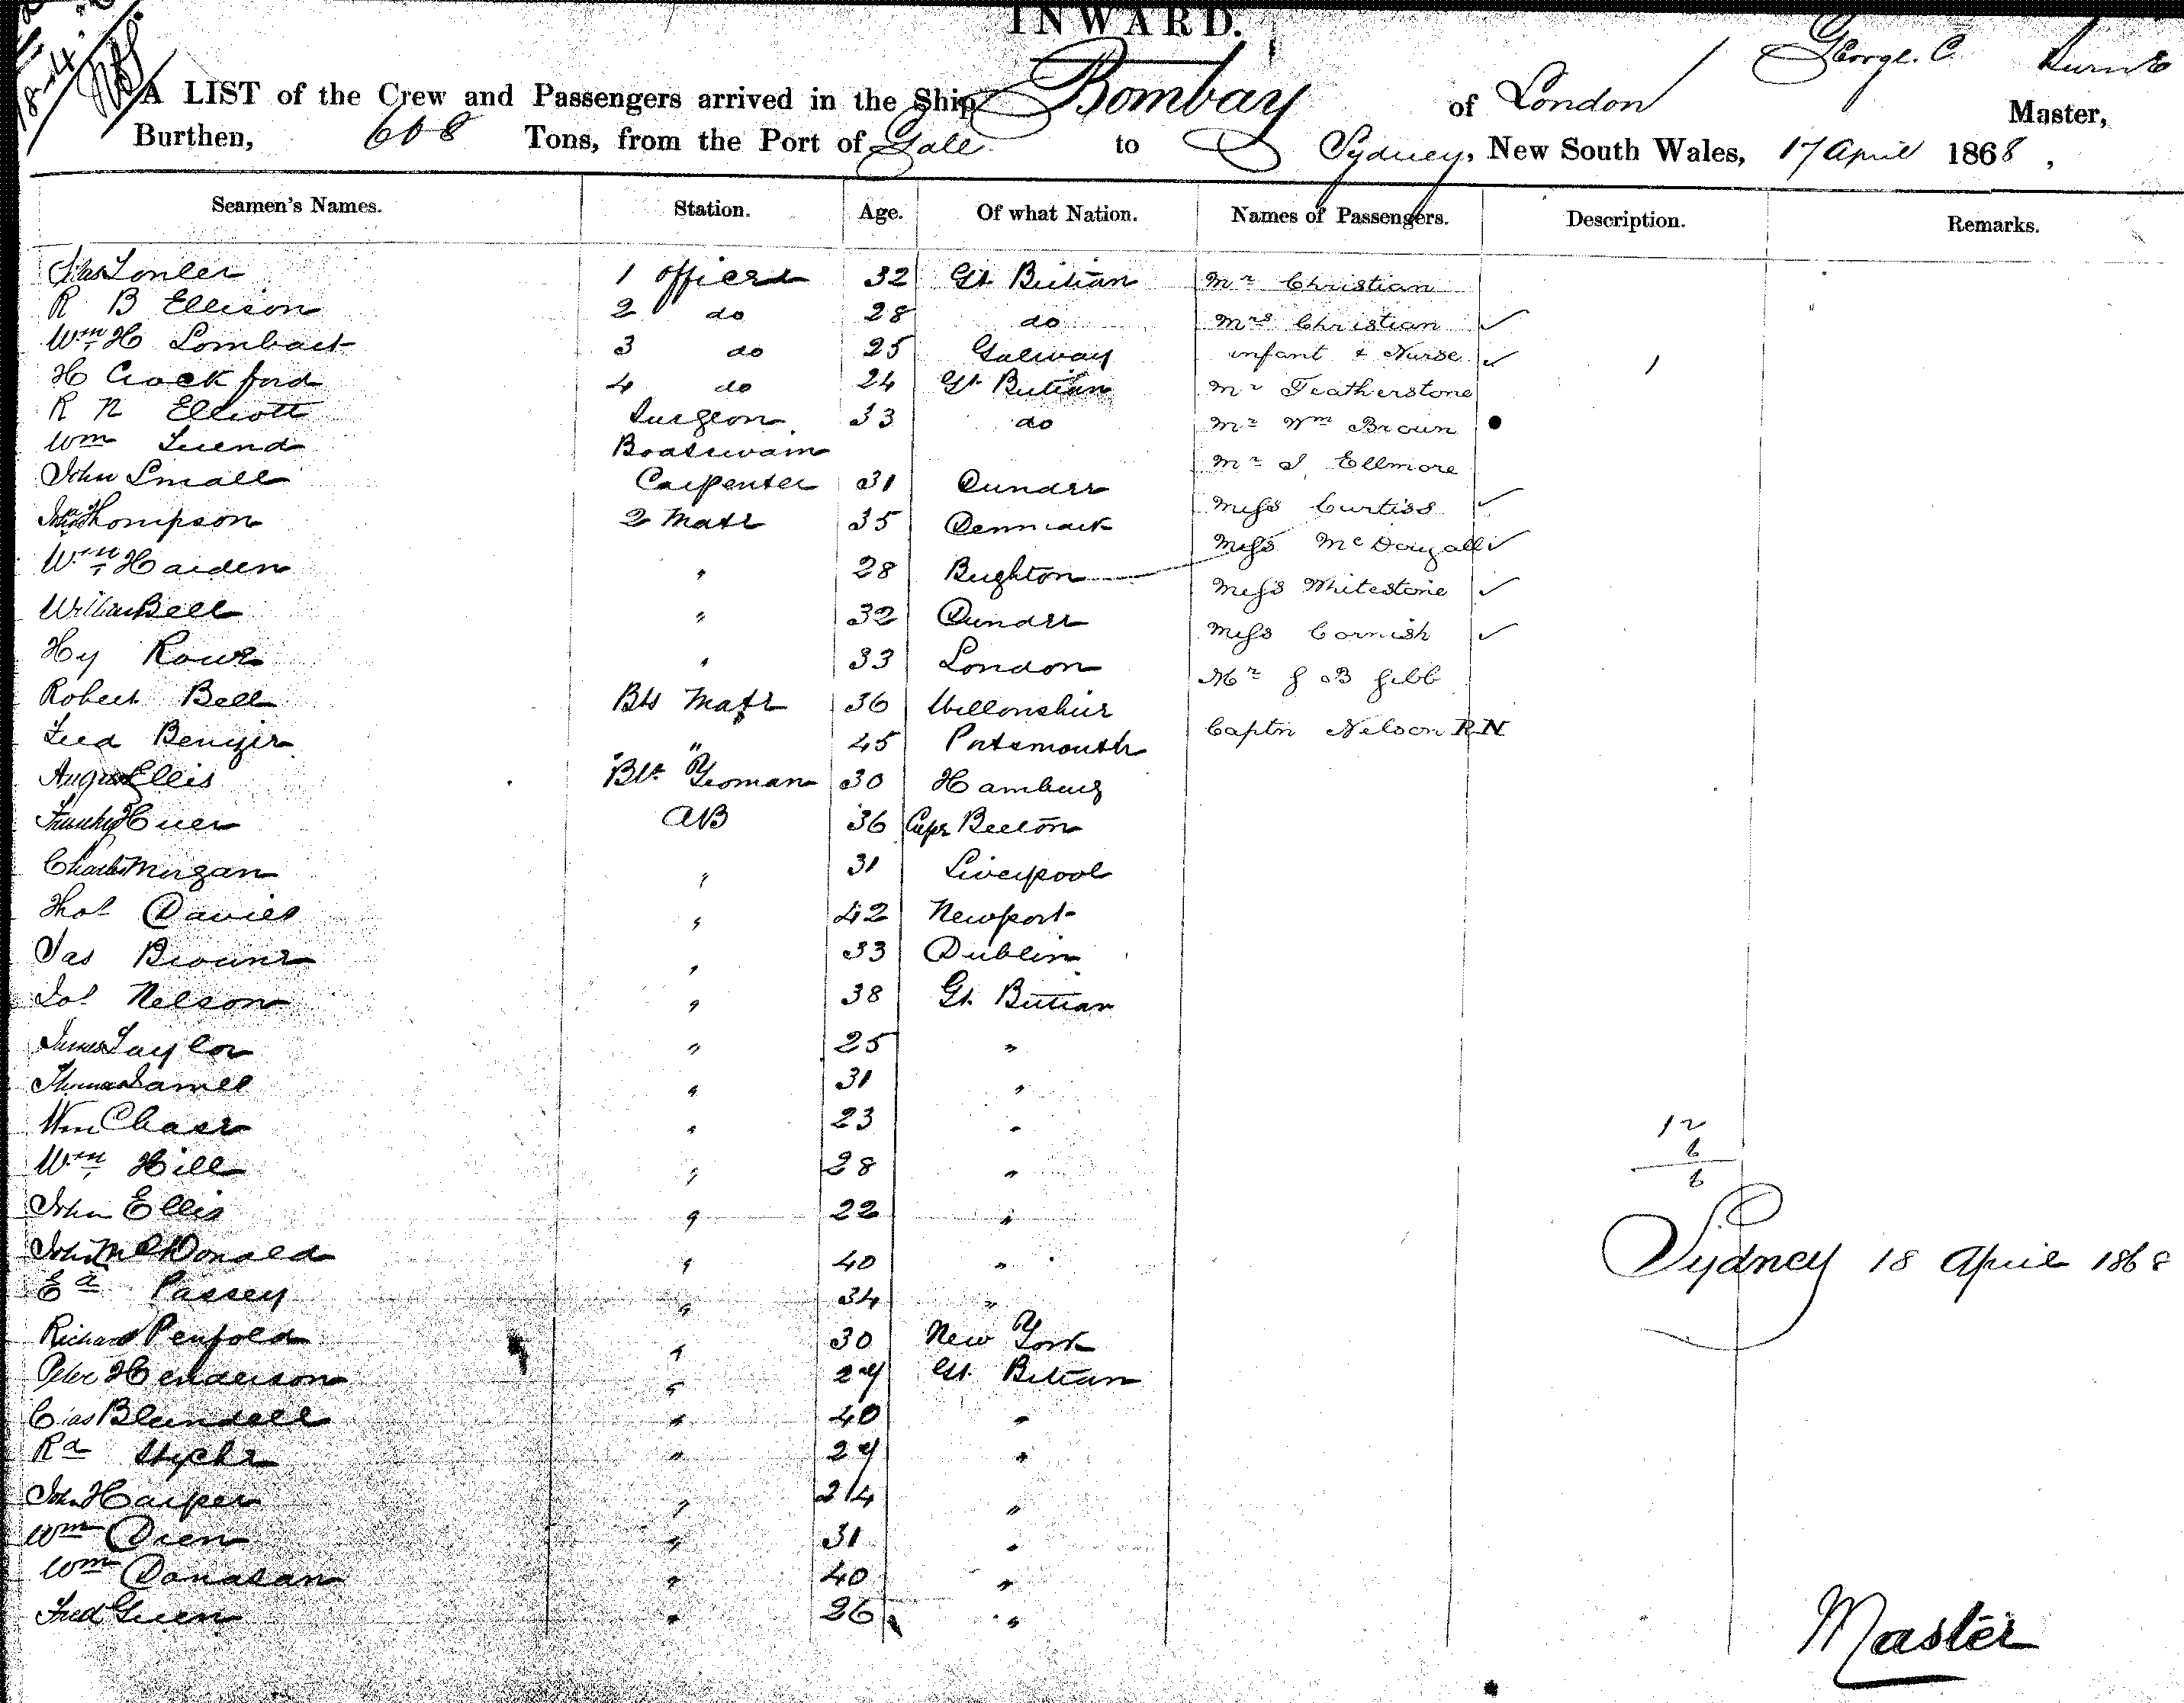 INWARD.
George. C.
A LIST of the Crew and Passengers arrived in the Ship Bombay of London Master,
Burthen, 608 Tons, from the Port of Galle to Sydney, New South Wales, 17 April 1868,
Seamen's Names. Station. Age. Of what Nation. Names of Passengers. Description. Remarks.
1 officer 32 Gt. Britian Mr Christian
R B Ellison 2 do 28 do Mrs Christian ✓
Wm H Lombart 3 do 25 Galway infant & Nurse ✓
H Crockford 4 do 24 Gt. Britian Mr Featherstone
R N Elliott Surgeon 33 do Mr Wm Brown
Wm Boatswain Mr J Ellmore
John Small Carpenter 31 Dundee Miss Curtiss ✓
Thompson 2 Mate 35 Denmark Miss McDougall ✓
Wm Harden " 28 Brighton Miss Whitestone ✓
William Bell " 32 Dundee Miss Cornish ✓
Hy Rowe " 33 London Mr J B Gibb
Robert Bell Bts Mate 36 Captn Nelson RN
Fred " 45 Portsmouth
August Ellis Yeoman 30 Hamburg
AB 36 Cape Breton
Charles Morgan " 31 Liverpool
Thos Davies " 42 Newport
Jas Browne " 33 Dublin
Jos Nelson " 38 Gt. Britian
James Taylor " 25 "
Thomas James " 31 "
Wm Chase " 23 "
12
6
6
Wm Hill " 28 "
John Ellis " 22 "
John McDonald " 40 "
Sydney 18 April 1868
Ed Passey " 34 "
Richard Penfold " 30 New York
Peter Henderson " 27 Gt. Britian
Chas Blundell " 40 "
Rd Styche " 27 "
John Harper " 24 "
Wm Dien " 31 "
Wm Donasan " 40 "
Fred Green " 26 "
Master